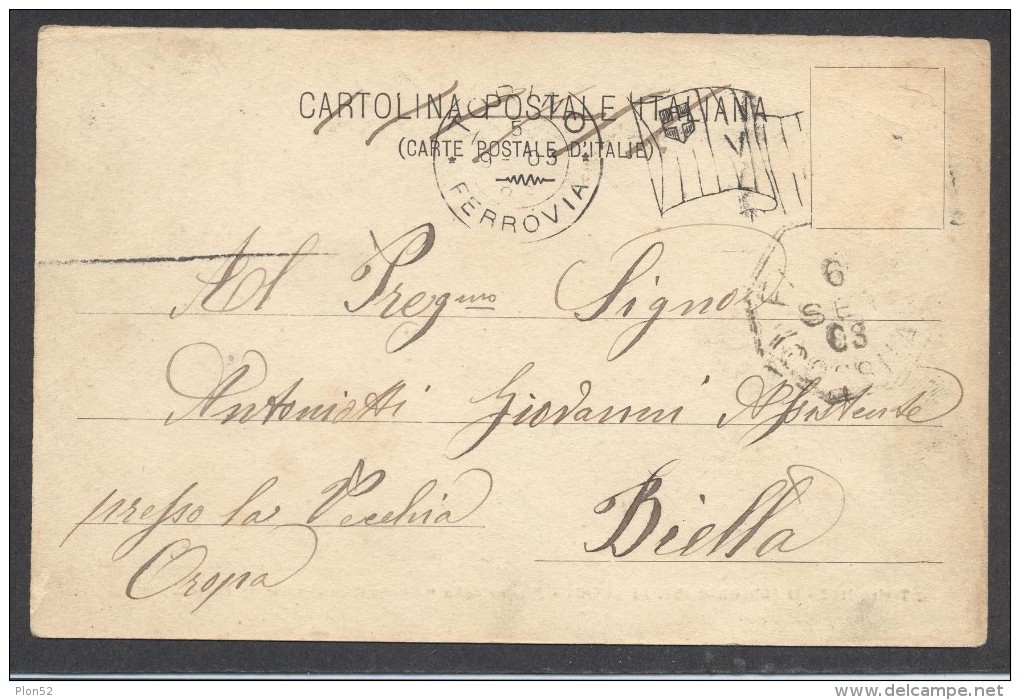 CARTOLINA POSTALE ITALIANA
(CARTE POSTALE D'ITALIE)
TORINO
5
9 - 03
* FERROVIA *
V
6
SET
03
COSSILA
Al Preg.mo Signor
Antoniotti Giovanni Assistente
presso la Vecchia
Oropa
Biella
Plon52
www.delcampe.net